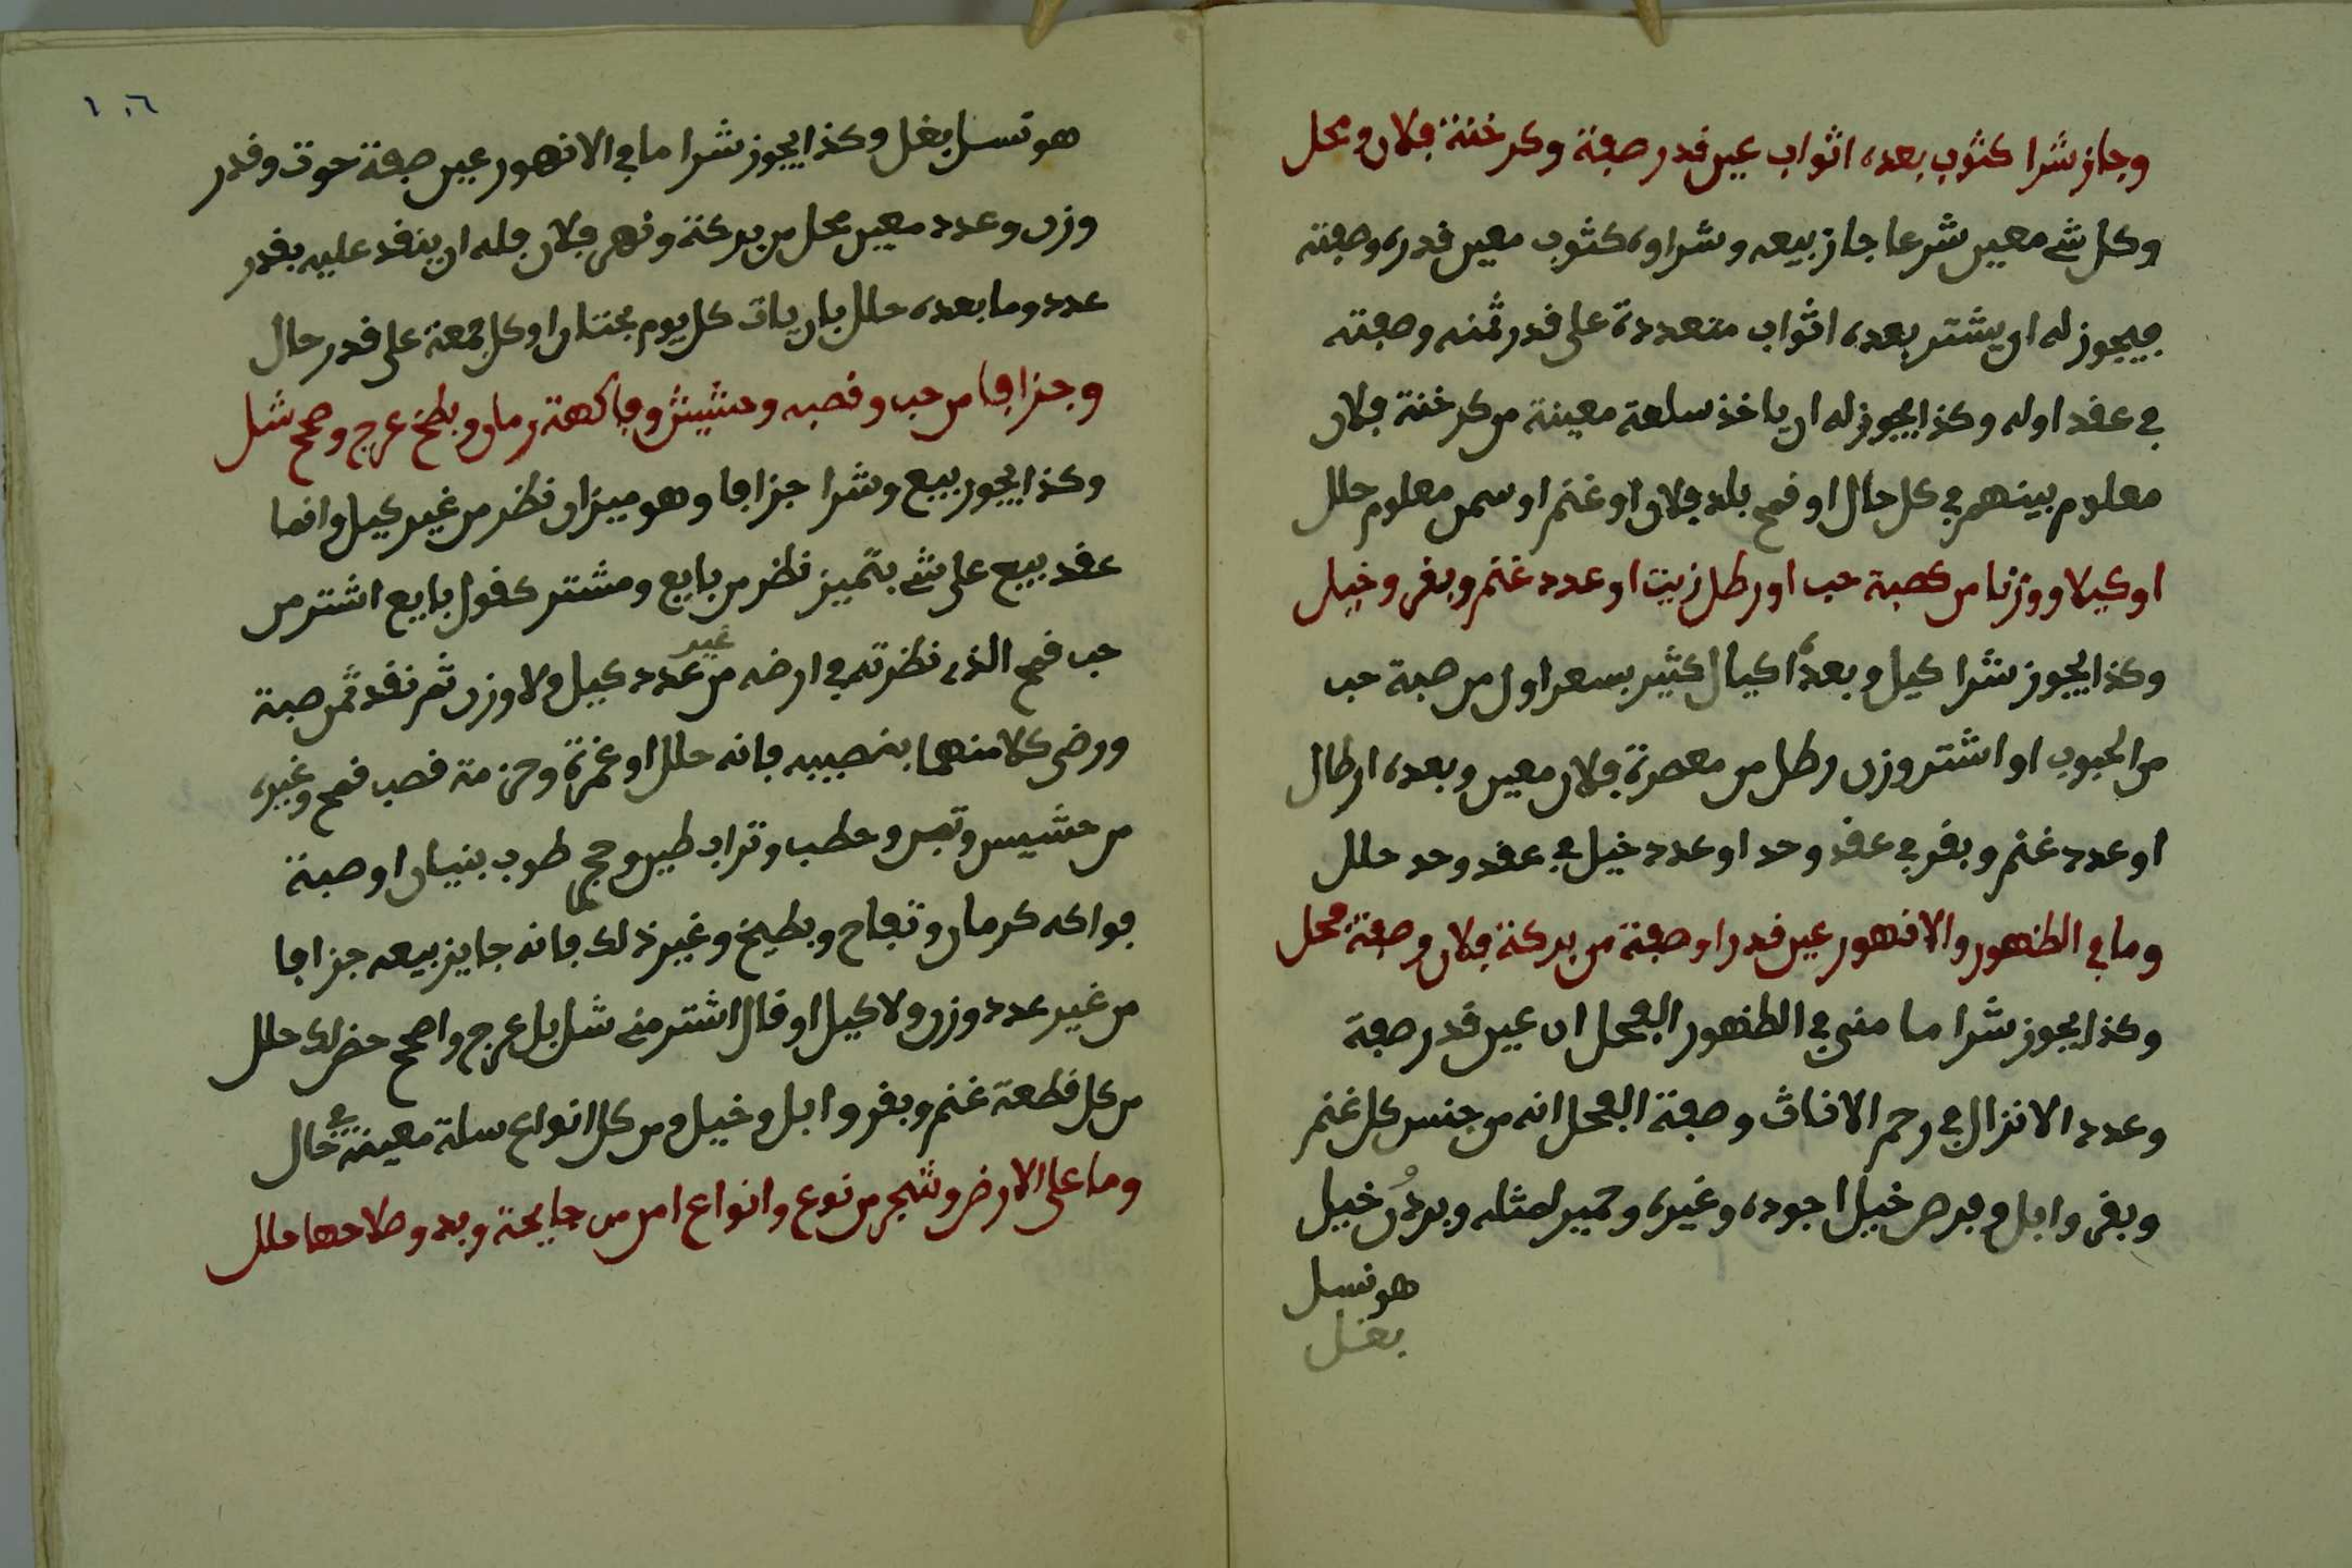 وجاز شرا كثوب بعده اثواب عين قدر صفة وكرخنة فلان ومحل
وكل شے معين شرعا جاز بيعه وشراوه كثوب معين قدره وصفته
فيجوز له ان يشتر بعده اثواب متعددة على قدر ثمنه وصفته
في عقد اوله وكذا يجوز له ان ياخذ سلعة معينة من كرخنة فلان
معلوم بينهم في كل حال او قمح بلد فلان او غنم او سمن معلوم حلل
او كيلا ووزنا من كصبة حب او رطل زيت او عدد غنم وبقر وخيل
وكذا يجوز شرا كيل وبعده اكيال كثير بسعر اول من صبة حب
من الحبوب او اشتر وزن رطل من معصرة فلان معين وبعده ارطال
او عدد غنم وبقر في عقد وحد او عدد خيل في عقد وحد حلل
وما في الظهور والانهور عين قدر او صفة من بركة فلان وصفة محل
وكذا يجوز شرا ما مني في الظهور الفحل ان عين قدر صفة
وعدد الانزال في رحم الاناث وصفة الفحل انه من جنس كل غنم
وبقر وابل وفرص خيل اجوده وغيره وحمير لمثله وبرذن خيل
هو نسل
بغل
١٠٦
هو نسل بغل وكذا يجوز شرا ما في الانهور عين صفة حوت وقدر
وزن وعدد معين محل من بركة ونهر فلان فله ان ينقد عليه بقدر
عدد وما بعده حلل بان يات كل يوم مختلن او كل جمعة على قدر حال
وجزافا من حب وقصبه وحشيش وفاكهة رمان وبطخ عرج وصحح شل
وكذا يجوز بيع وشرا جزافا وهو ميزان نظر من غير كيل وانما
عقد بيع على شے بتميز نظر من بايع ومشتر كقول بايع اشتر من
حب قمح الذي نظرته في ارضه من غير عدد كيل ولا وزن ثم نقد ثمن صبة
ورضى كلا منهما بنصيبه فانه حلل او غمرة وحزمة قصب قمح وغيره
من حشيس وتبن وحطب وتراب طين وحجر طوب بنيان او صبة
فواكه كرمان وتفاح وبطيخ وغير ذلك فانه جايز بيعه جزافا
من غير عدد وزن ولا كيل او قال اشتر مني شل بل عرج واصحح حضر لك حلل
من كل قطعة غنم وبقر وابل وخيل ومن كل انواع سلة معينة في حال
وما على الارض وشجر من نوع وانواع امن من جايحة وبدو صلاحها حلل